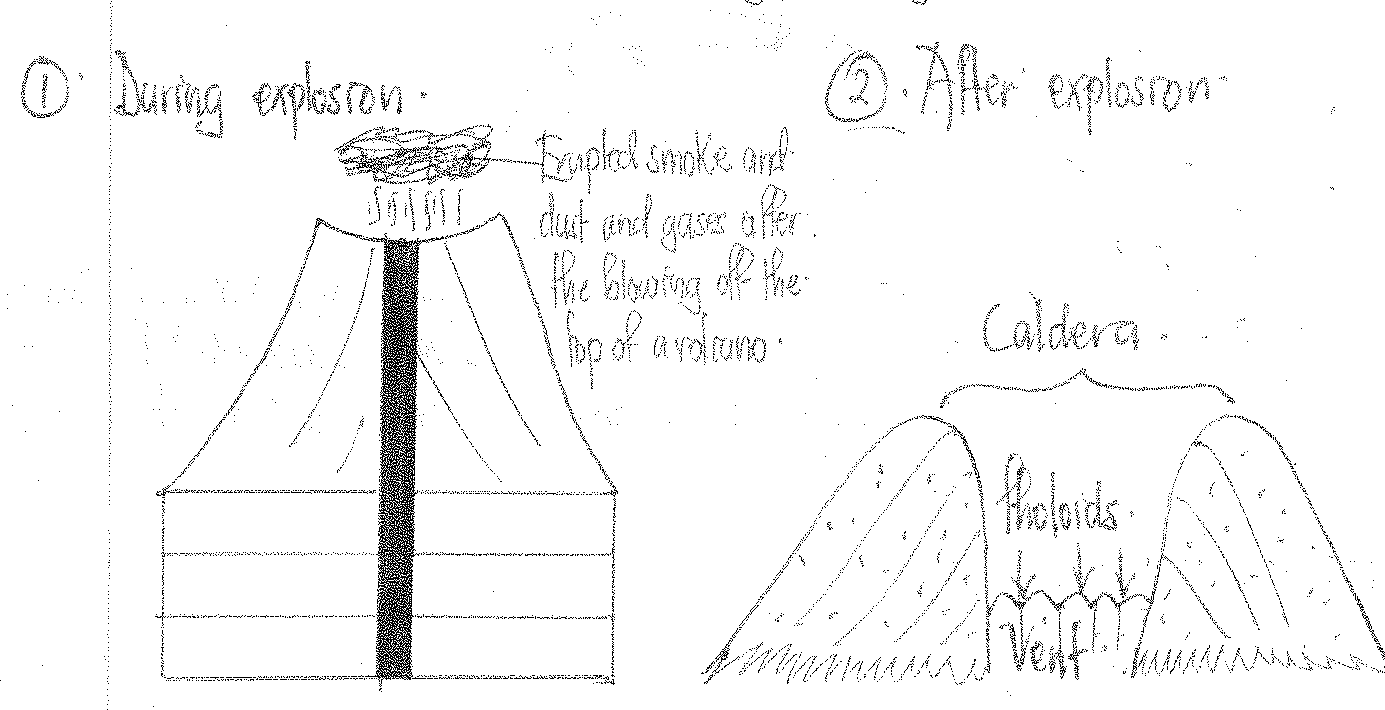 ① During explosion.
Erupted smoke and
dust and gases after
the blowing off the
top of a volcano.
② After explosion
Caldera
tholoids
Vent